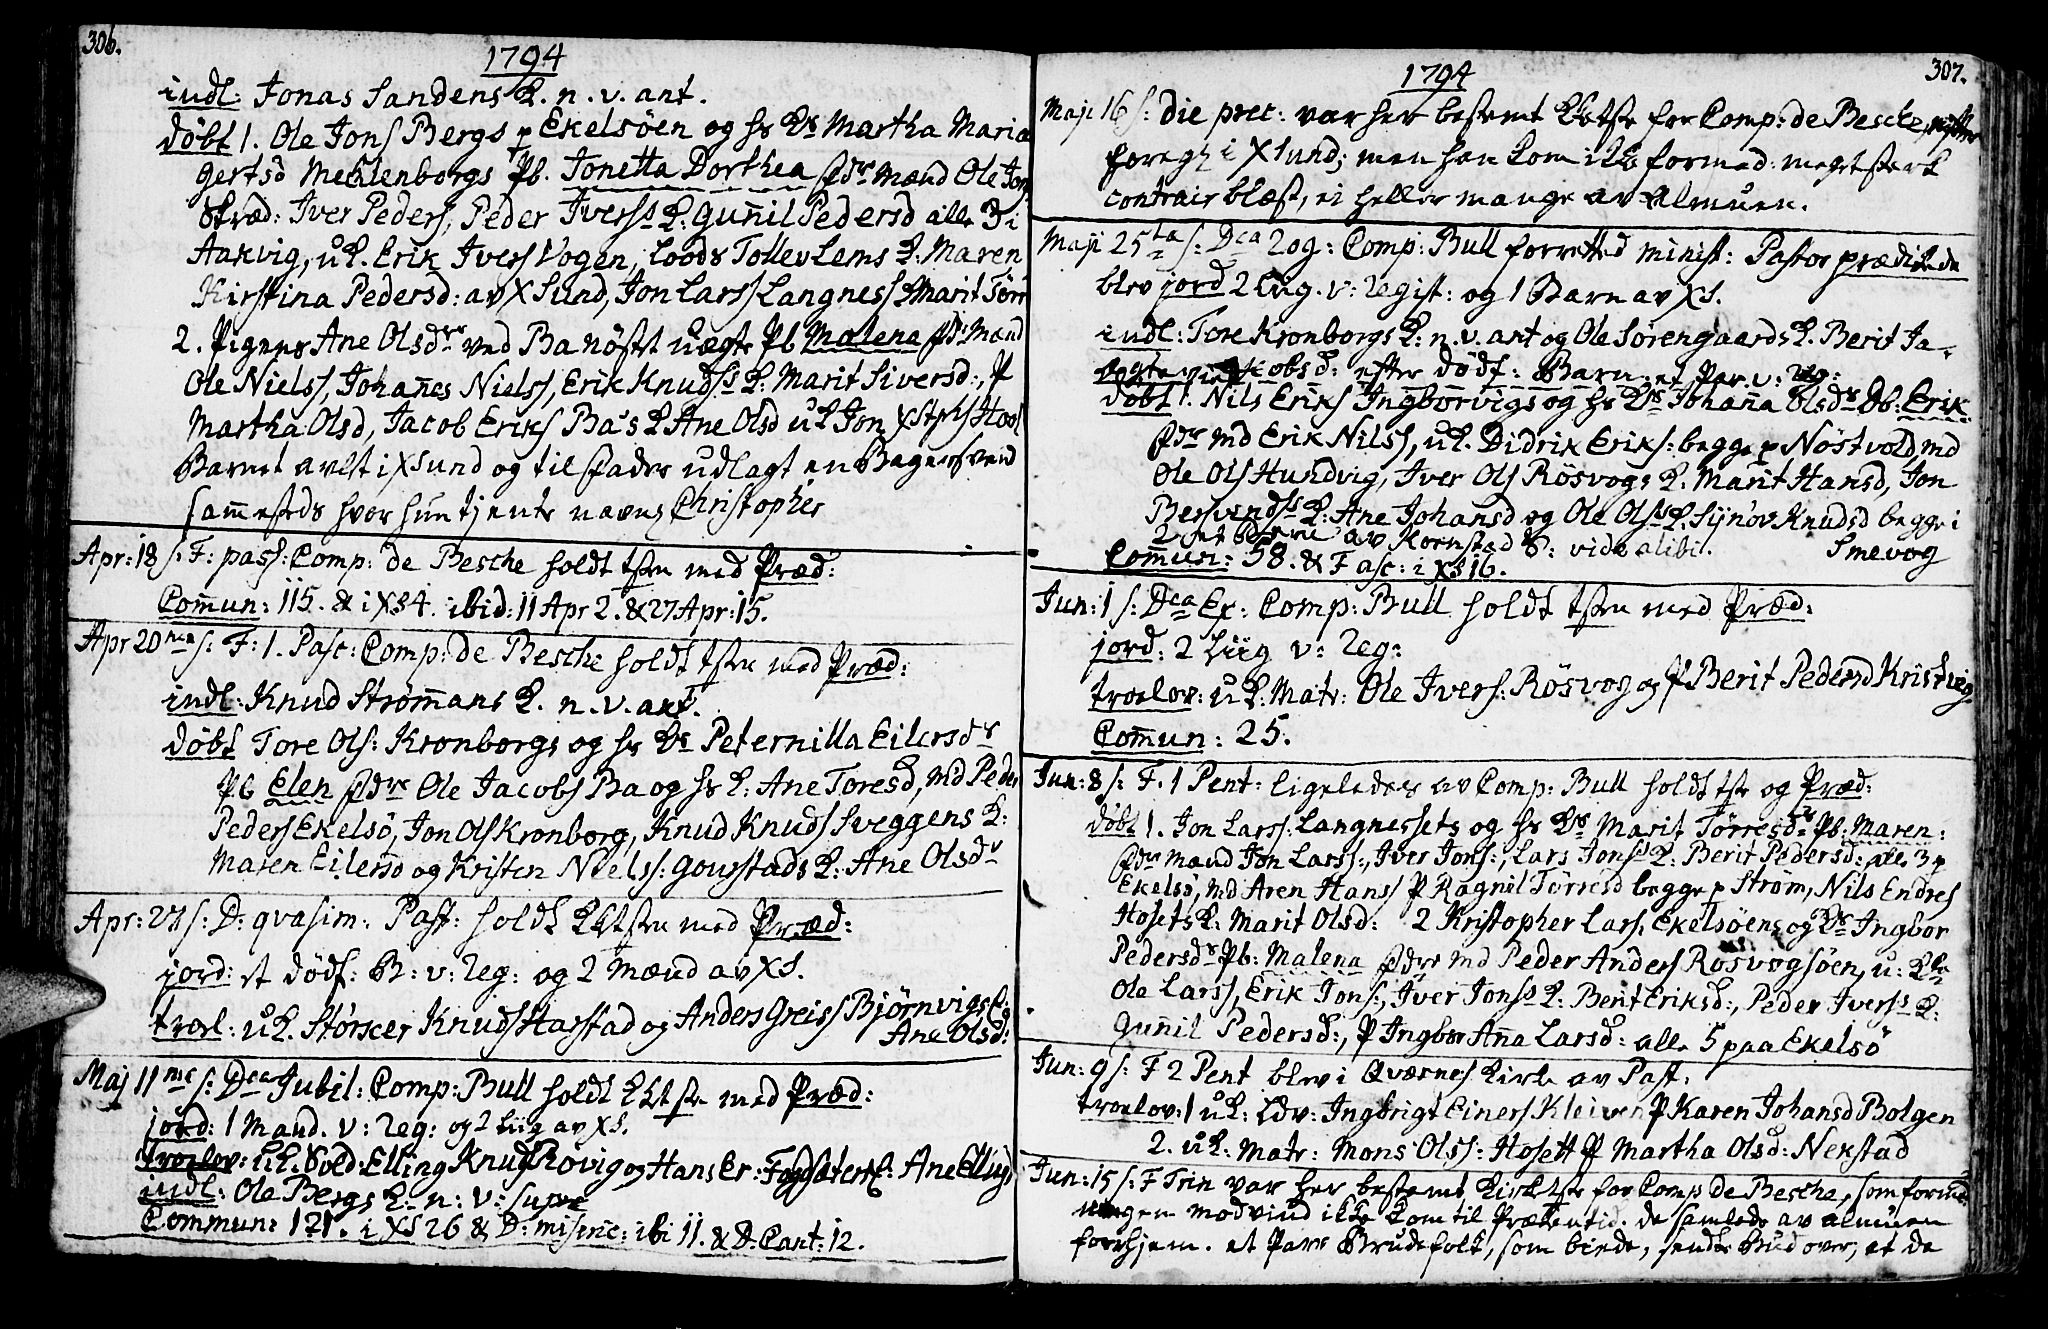 306.
1794
indl: Jonas Sandens K. n. v. ant.
döbt 1. Ole Jons Bergs p Ekelsöen og hs Ks Martha Maria
Gertsd Meklenborgs Pb. Jonetta Dorthea fdre Mænd Ole Jons
Stræd: Iver Peders, Peder Iverss K: Guñil Pedersd alle 3 i
Aakvig, uk. Erik Ivers Vogen, Loods Tollev Lems K: Maren
Kirstina Pedersd: av XSund, Jon Larss Langness K Marit Törr
2. Pigens Ane Olsdrs ved Banöstet uægte Pb Malena fdr Mænd
Ole Nielss, Johañes Nielss, Erik Knudss K: Marit Siversd:, P
Martha Olsd, Jacob Eriks Ba's K Ane Olsd uk Jon Hool
Barnet avlet i XSund og til fader udlagt en Bagersvend
sam̃esteds hvor hun tjente navnl Christopher
Apr: 18 s: F: pass: Comp: de Besche holdt tsten med Præd:
Com̃un: 115. & i XS 4. ibid: 11 Apr 2. & 27 Apr: 15.
Apr 20 s: F: 1. Pasc: Comp: de Besche holdt tsten med Præd:
indl: Knud Ström̃ans K. n. v. ant.
döbt Tore Ols: Kronborgs og hs Ks Peternilla Eilersdr
Pb Elen fdre Ole Jacobs Ba og hs K: Ane Toresd, Md Peder
Peders Ekelsö, Jon Ols Kronborg, Knud Knuds Sveggens K:
Maren Eilersd og Kristen Nielss: Gourstads K: Ane Olsdr
Apr: 27 s: D: qvasim: Past: holdt Kktsten med Præd:
jord: et dödf: B: v: Reg: og 2 Mænd av XS.
trol: uk. Störker Knuds Harstad og Anders Greiss Björnvigs E:
Ane Olsd:
Maj 11 s: Dca Jubil: Comp: Bull holdt Kktste med Præd:
jord: 1 Mand. v: Reg: og 2 Liig av XS.
Troelov: uk. Sold: Elling Knuds Rövig og Hans Er: Fogsæter E: Ane Ellingsd
indl: Ole Bergs K. n: v: supr
Commun: 121. i XS 26 & D: miseric: ibi 11. & D. Cant: 12.
307.
1794
Maji 16 s: die prec: var her bestemt Kktste for Comp: de Besche,
foregl i XSund; men han kom ikke formed: meget sterk
contrair blæst, ei heller mange av Almuen.
Maji 25ta s: Dca Rog: Comp: Bull forretted minist: Pastor prædikede
blev jord 2 Liig. v: Regist: og 1 Barn av XS.
indl: Tore Kronborgs K: n. v. ant og Ole Sörengaards K. Berit Ja-
kobsd: efter dödf: Barn: et Par. v: Reg:
döbt 1. Nils Eriks Ingborvigs og hs Ks Johaña Olsdrs Db: Erik
fdre md Erik Nilss, uk. Didrik Eriks: begge p Nöstvold, md
Ole Ols Hundvig, Iver Ols Rösvogs K. Marit Hansd, Jon
Bersvendss K: Ane Johansd og Ole Olss K. Synöv Knudsd begge i
Smevog
2 et Börn av Kornstad S: vide alibi.
Com̃un: 58. & F Asc: i XS 16.
Jun: 1 s: Dca Ex: Comp: Bull holdt tsten med Præd:
jord: 2 Liig v: Reg:
troelov: uk: Matr: Ole Ivers: Rösvog og P Berit Pedersd Kristvig
Com̃un: 25.
Jun: 8 s: F. 1 Pent: ligeledes av Comp: Bull holdt tste og Præd:
döbt 1. Jon Larss: Langnessets og hs Ks Marit Törresdrs Pb: Maren:
fdre mænd Jon Larss:, Iver Jons:, Lars Jonss K: Berit Pedersd: alle 3 p
Ekelsö, md Aren Hans P Ragnel Törresd begge p Ström, Nils Endres
Hosets K: Marit Olsd: 2 Kristopher Lars. Ekelsöens og Ks Ingbor
Pedersdrs Pb: Malena fdre md Peder Anders Rösvogsöen, u: K
Ole Larss, Erik Jons:, Iver Jonss K: Berit Eriksd:, Peder Iverss K:
Guñil Pedersd:, P Ingbor Aña Larsd: alle 5 paa Ekelsö
Jun: 9 s: F 2 Pent blev i Qværnes kirke av Past.
troelov: 1 uk: Ldv: Ingbrigt Einers Kleiven P Karen Johansd Bolgen
2. uk: Matr: Mons Olss: Hosett P Martha Olsd: Nekstad
Jun: 15 s: F Trin var her bestemt Kirketste for Comp de Besche, som
modvind ikke kom til Præketid. de samlede av Almuen
forhjem. et Par Brudefolk, som biede, sendte Bud over, at de